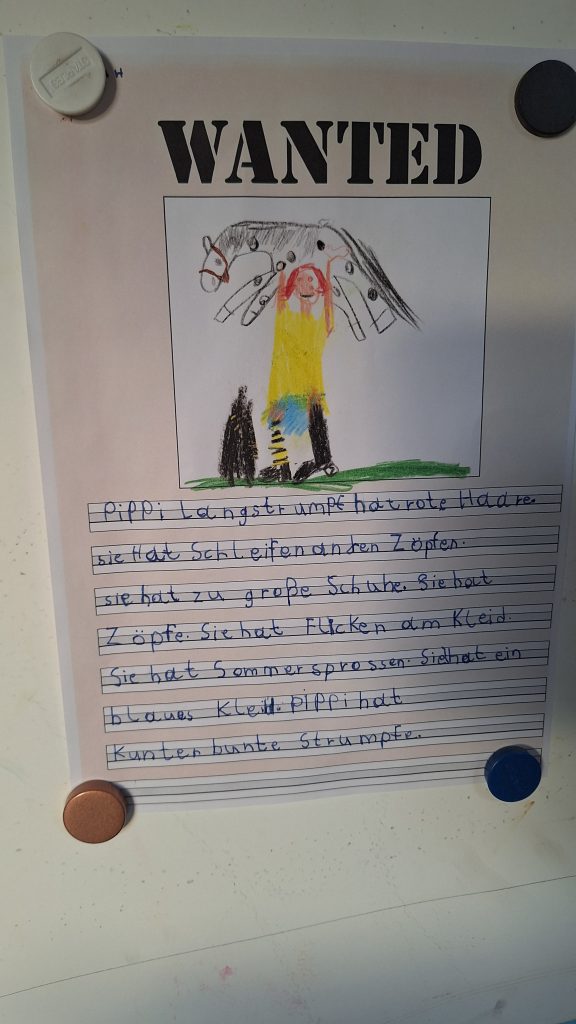 WANTED
Pippi Langstrumpf hat rote Haare.
sie Hat Schleifen an den Zöpfen.
sie hat zu große Schuhe. Sie hat
Zöpfe. Sie hat Flicken am Kleid.
Sie hat Sommersprossen. Sie hat ein
blaues Kleid. Pippi hat
Kunterbunte Strumpfe.